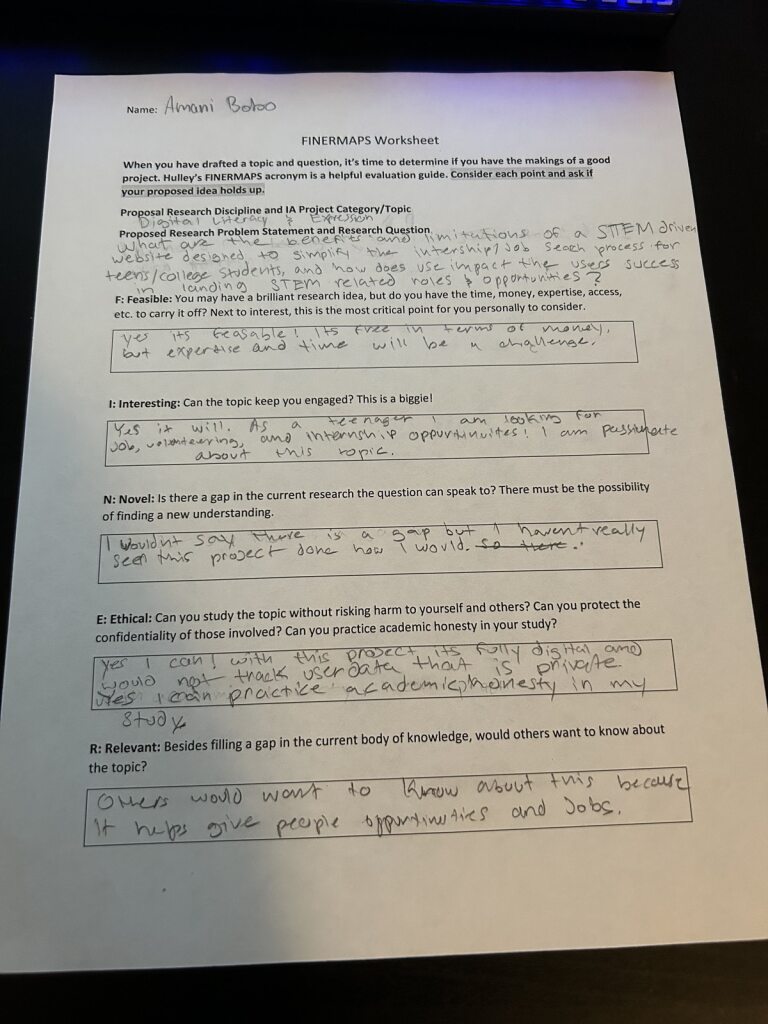 Name: Amani Botoo
FINERMAPS Worksheet
When you have drafted a topic and question, it's time to determine if you have the makings of a good
project. Hulley's FINERMAPS acronym is a helpful evaluation guide. Consider each point and ask if
your proposed idea holds up.
Proposal Research Discipline and IA Project Category/Topic
Digital Literacy & Expression
Proposed Research Problem Statement and Research Question
What are the benefits and limitations of a STEM driven
website designed to simplify the intership/Job seach process for
teens/college students, and how does use impact the users success
in landing STEM related roles & opportunities?
F: Feasible: You may have a brilliant research idea, but do you have the time, money, expertise, access,
etc. to carry it off? Next to interest, this is the most critical point for you personally to consider.
yes its feasable! Its free in terms of money,
but expertise and time will be a challenge.
I: Interesting: Can the topic keep you engaged? This is a biggie!
Yes it will. As a teenager I am looking for
Job, volunteering, and internship oppurtinuites! I am passionate
about this topic.
N: Novel: Is there a gap in the current research the question can speak to? There must be the possibility
of finding a new understanding.
I wouldnt say there is a gap but I havent really
seen this project done how I would. so there.
E: Ethical: Can you study the topic without risking harm to yourself and others? Can you protect the
confidentiality of those involved? Can you practice academic honesty in your study?
Yes I can! with this project its fully digital and
would not track user data that is private.
Yes I can practice academic honesty in my
study
R: Relevant: Besides filling a gap in the current body of knowledge, would others want to know about
the topic?
Others would want to know about this because
It helps give people oppurtinuties and Jobs.